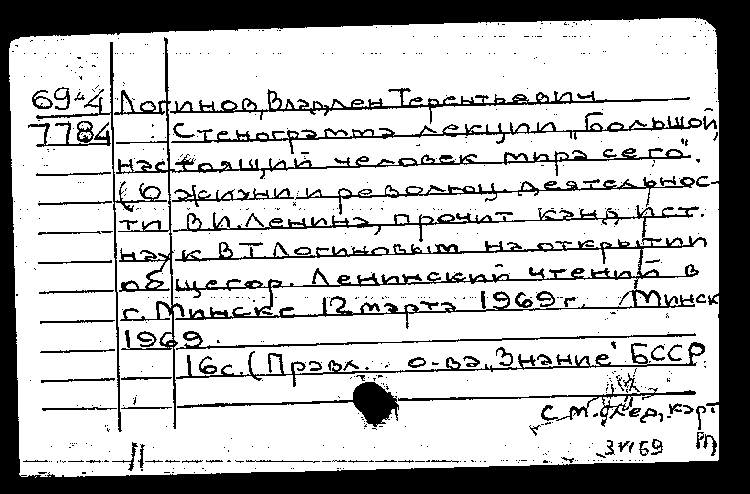 69-4 Логинов, Владлен Терентьевич
7784 Стенограмма лекции „Большой,
настоящий человек мира сего".
(О жизни и революц. деятельнос-
ти В.И.Ленина, прочит канд ист.
наук В Т Логиновым на открытии
общегор. Ленинский чтений в
г. Минске 12 марта 1969 г. Минск
1969.
16с. (Правл. о-ва „Знание" БССР
См. след. карт
3 VI 69
11